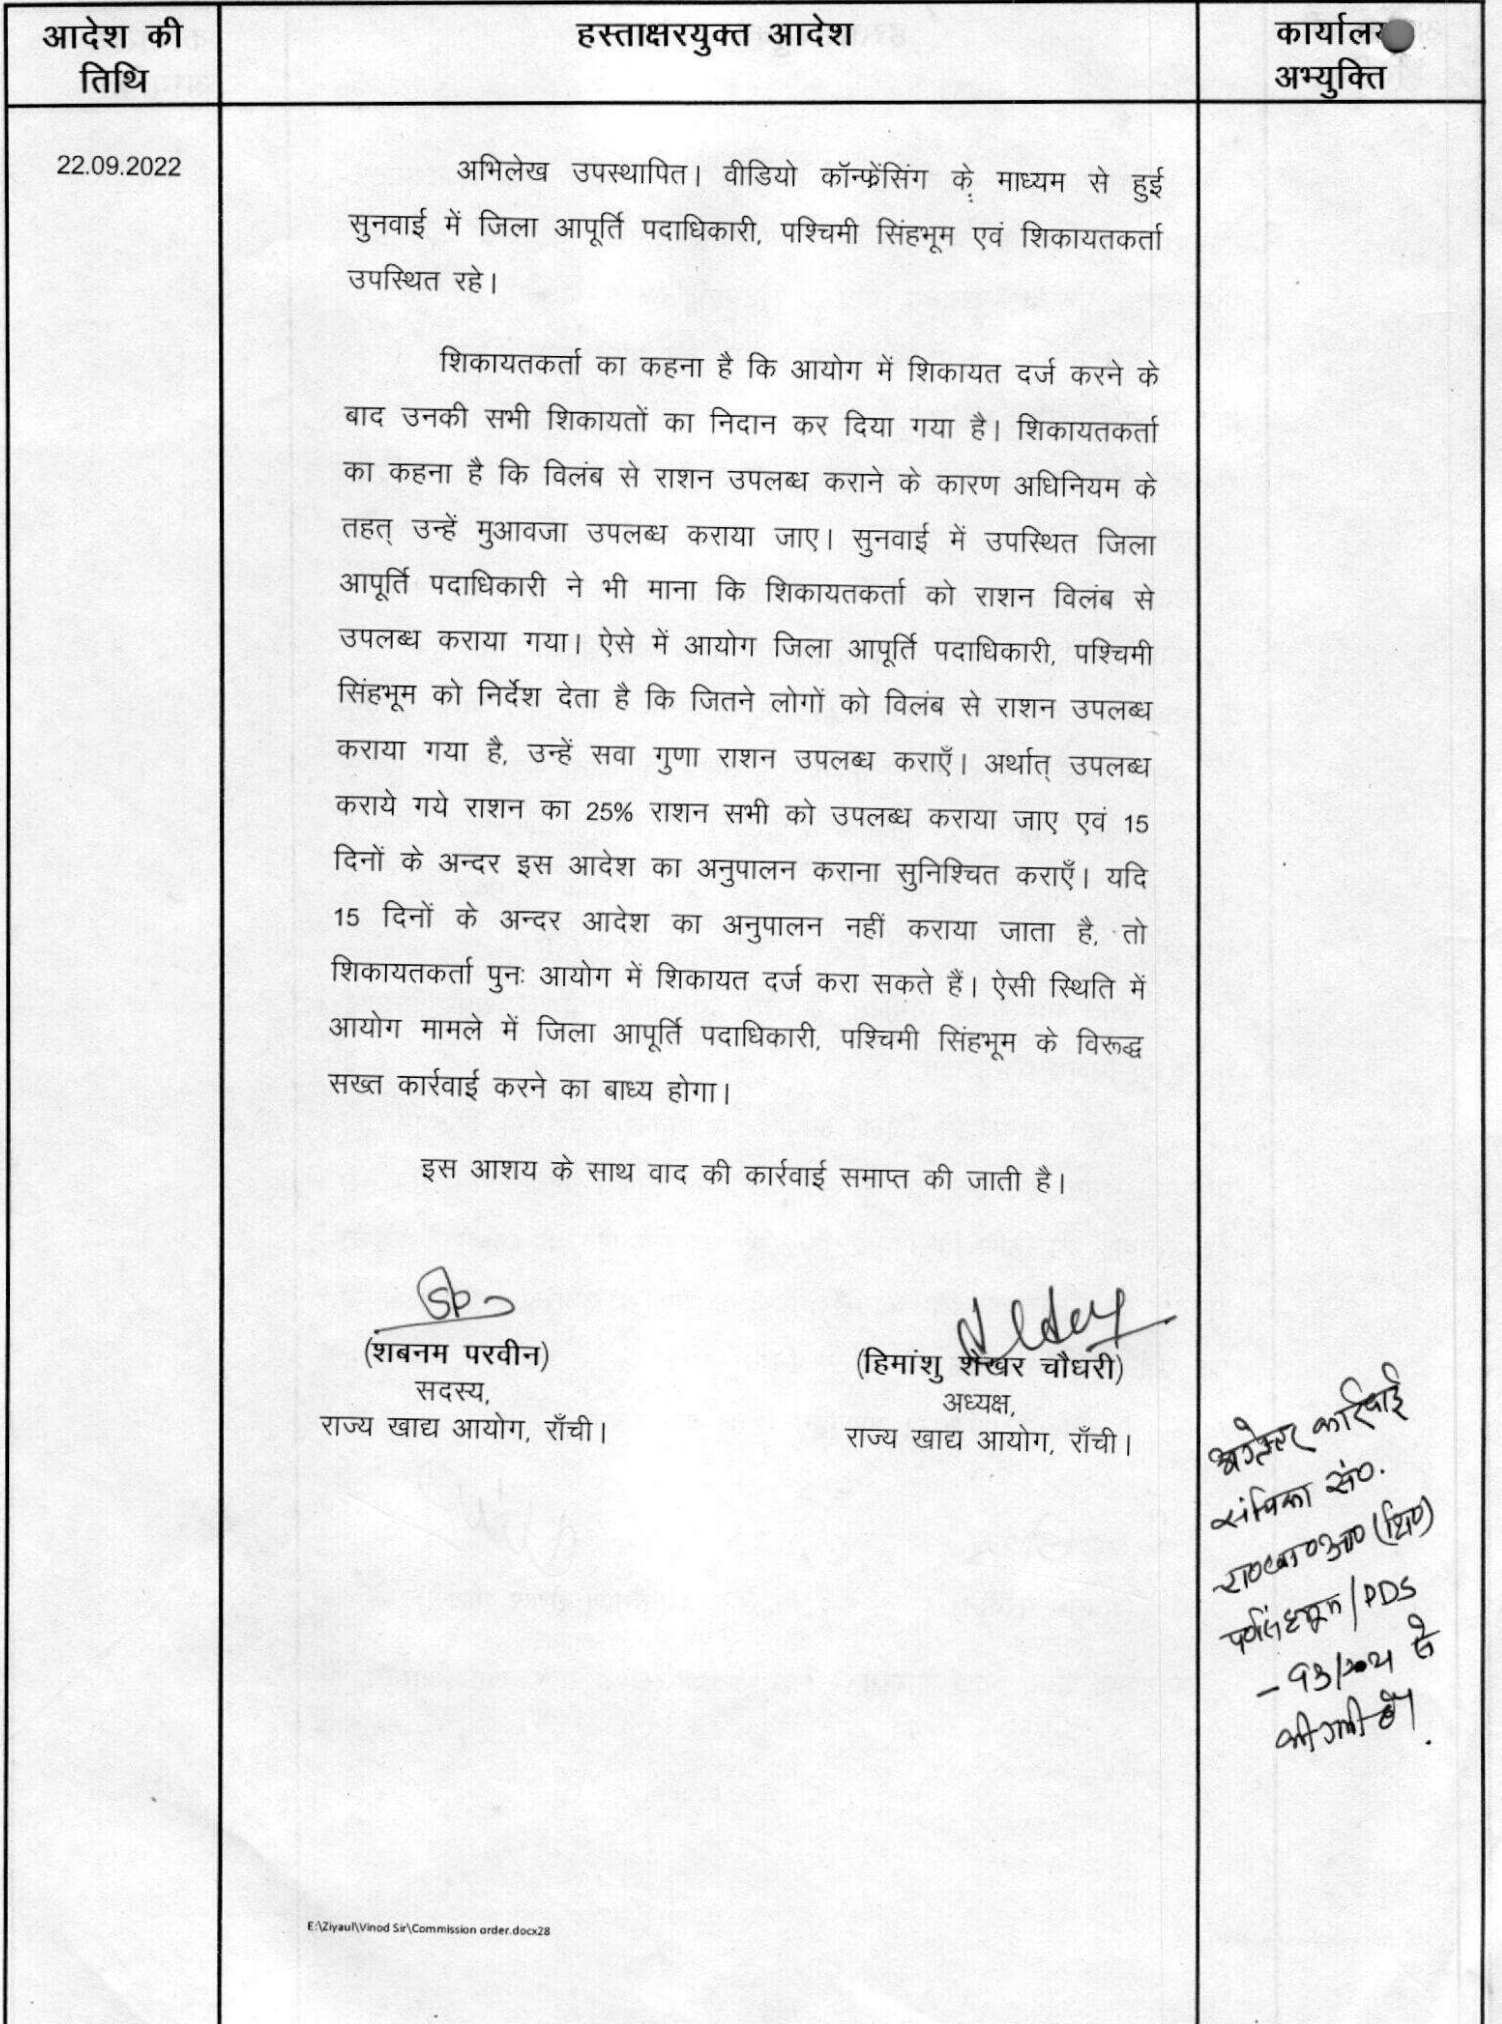 आदेश की
तिथि
हस्ताक्षरयुक्त आदेश
कार्यालय
अभ्युक्ति
22.09.2022
अभिलेख उपस्थापित। वीडियो कॉन्फ्रेंसिंग के माध्यम से हुई
सुनवाई में जिला आपूर्ति पदाधिकारी, पश्चिमी सिंहभूम एवं शिकायतकर्ता
उपस्थित रहे।
शिकायतकर्ता का कहना है कि आयोग में शिकायत दर्ज करने के
बाद उनकी सभी शिकायतों का निदान कर दिया गया है। शिकायतकर्ता
का कहना है कि विलंब से राशन उपलब्ध कराने के कारण अधिनियम के
तहत् उन्हें मुआवजा उपलब्ध कराया जाए। सुनवाई में उपस्थित जिला
आपूर्ति पदाधिकारी ने भी माना कि शिकायतकर्ता को राशन विलंब से
उपलब्ध कराया गया। ऐसे में आयोग जिला आपूर्ति पदाधिकारी, पश्चिमी
सिंहभूम को निर्देश देता है कि जितने लोगों को विलंब से राशन उपलब्ध
कराया गया है, उन्हें सवा गुणा राशन उपलब्ध कराएँ। अर्थात् उपलब्ध
कराये गये राशन का 25% राशन सभी को उपलब्ध कराया जाए एवं 15
दिनों के अन्दर इस आदेश का अनुपालन कराना सुनिश्चित कराएँ। यदि
15 दिनों के अन्दर आदेश का अनुपालन नहीं कराया जाता है, तो
शिकायतकर्ता पुनः आयोग में शिकायत दर्ज करा सकते हैं। ऐसी स्थिति में
आयोग मामले में जिला आपूर्ति पदाधिकारी, पश्चिमी सिंहभूम के विरूद्ध
सख्त कार्रवाई करने का बाध्य होगा।
इस आशय के साथ वाद की कार्रवाई समाप्त की जाती है।
(शबनम परवीन)
सदस्य,
राज्य खाद्य आयोग, राँची।
(हिमांशु शेखर चौधरी)
अध्यक्ष,
राज्य खाद्य आयोग, राँची।
अग्रेत्तर कार्रवाई
संचिका सं०
रा०खा०आ० (शि०)
प०सिंहभूम/PDS
की गयी है।
E:\Ziyaul\Vinod Sir\Commission order.docx28